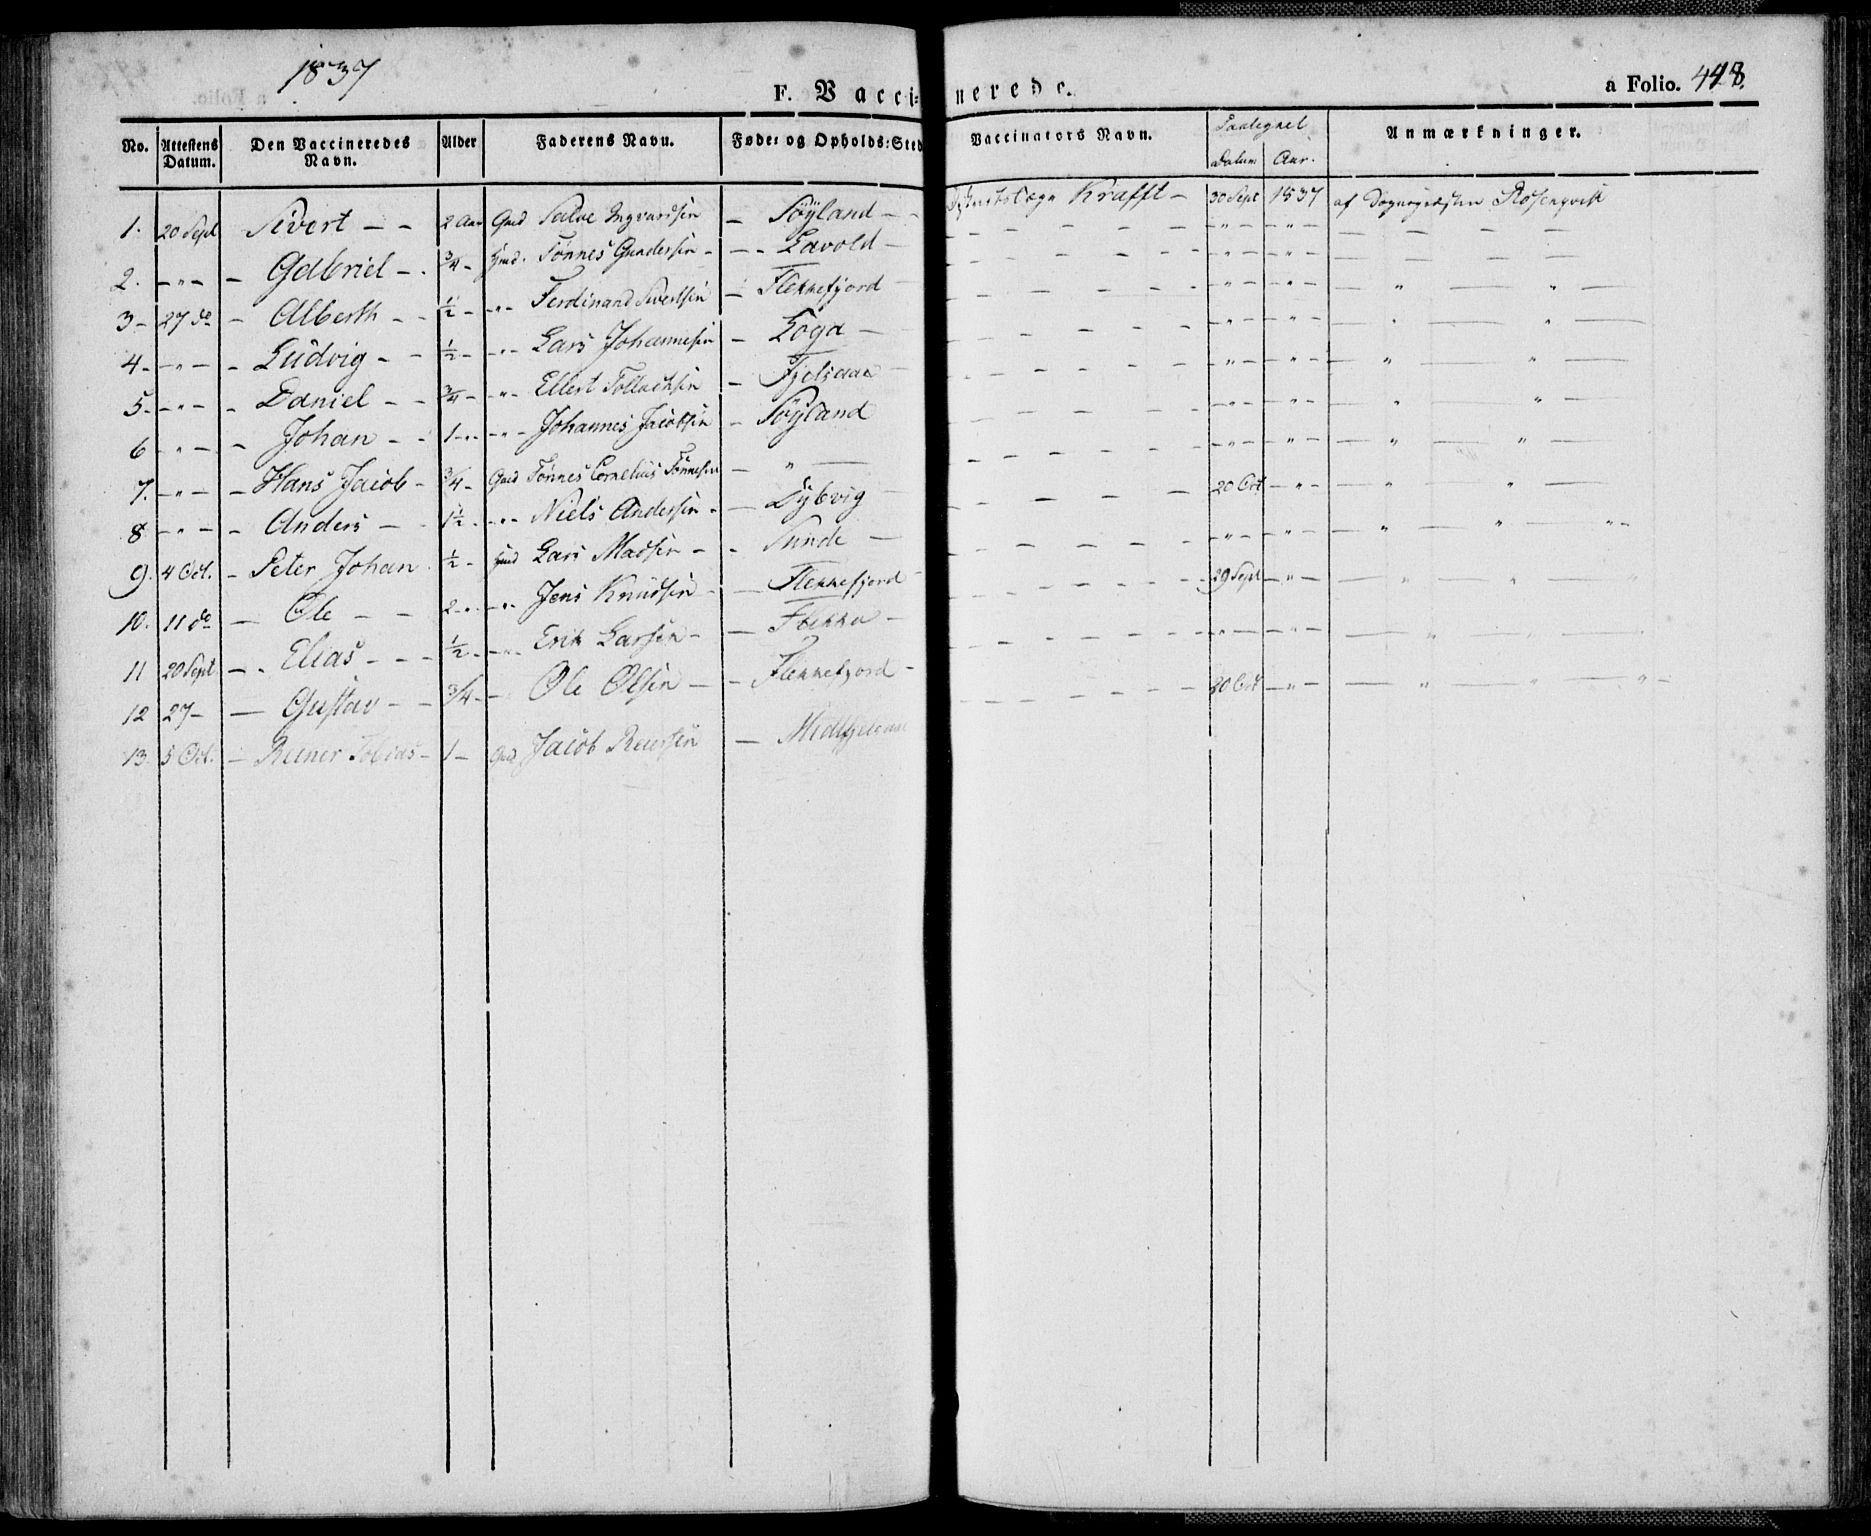 1837
F. Vaccinerede.
a Folio. 448.
No. | Attestens Datum. | Den Vaccineredes Navn. | Alder | Faderens Navn. | Føde- og Opholds-Sted | Vaccinators Navn. | Paategnet Datum | Aar. | Anmærkninger.
1. 20 Sept Sivert – – 2 Aar Gmd Salve Ingvardsen – Søyland – – Krafft – 30 Sept 1837 af Sognepræsten Rosenqvist
2. – " – – Gabriel – . 3/4 – Hmd. Tønnes Gundersen – – – Lavold – – " – – " –
3 – 27 do – Alberth – – 1/2 – – " – Ferdinand Sivertsen – Flekkefjord – " – – " – – " – " –
4 – – " – – Ludvig – – 1/2 – – " – Lars Johannesen – Loga – – " – – " – – " – " –
5 – – " – – Daniel – – 3/4 – – " – Ellert Tollachsen – Fjelsaae – " – – " – – " – " –
6 – " – – Johan – – 1 – " – – " – Johannes Jacobsen – Søyland – " – – " – – " – " –
7. – " – – Hans Jacob – 3/4 – Gmd Tønnes Cornelius Tønnesen – " – – " – – " – – " – " –
8 – " – – Anders – – 1 1/2 – – " – Niels Andersen – – Dybvig – 20 Oct – " – – " – " –
9. 4 Oct. – Peter Johan – 1/2 – Hmd Lars Madsen – – Sunde – – " – – " – – " – " – " –
10. 11 do – Ole – – 2 – " – – " – Jens Knudsen – – Flekkefjord – 29 Sept – " – – " – " – "
11 20 Sept – . Elias – – – 1/2 – – " – Erik Larsen – – Flekke – – " – – " – – " – " – "
12 27 – – Gustav – – 3/4 – – Ole Olsen – – Flekkefjord – 20 Oct – " – – " – " – " –
13. 5 Oct. – Reiner Tobias – 1 – Gmd Jacob Reiersen –